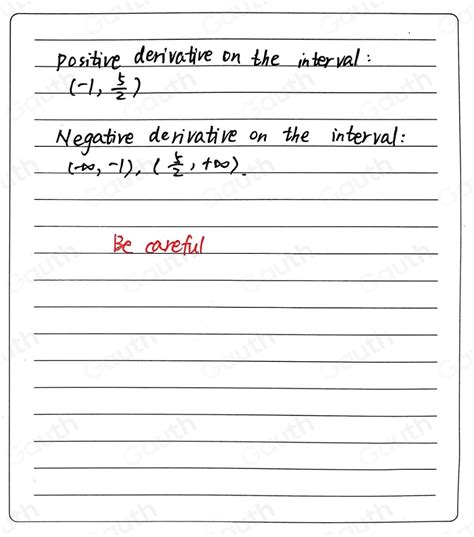 Positive derivative on the interval:
(-1, 5/2)
Negative derivative on the interval:
(-∞, -1), (5/2, +∞).
Be careful
Gauth